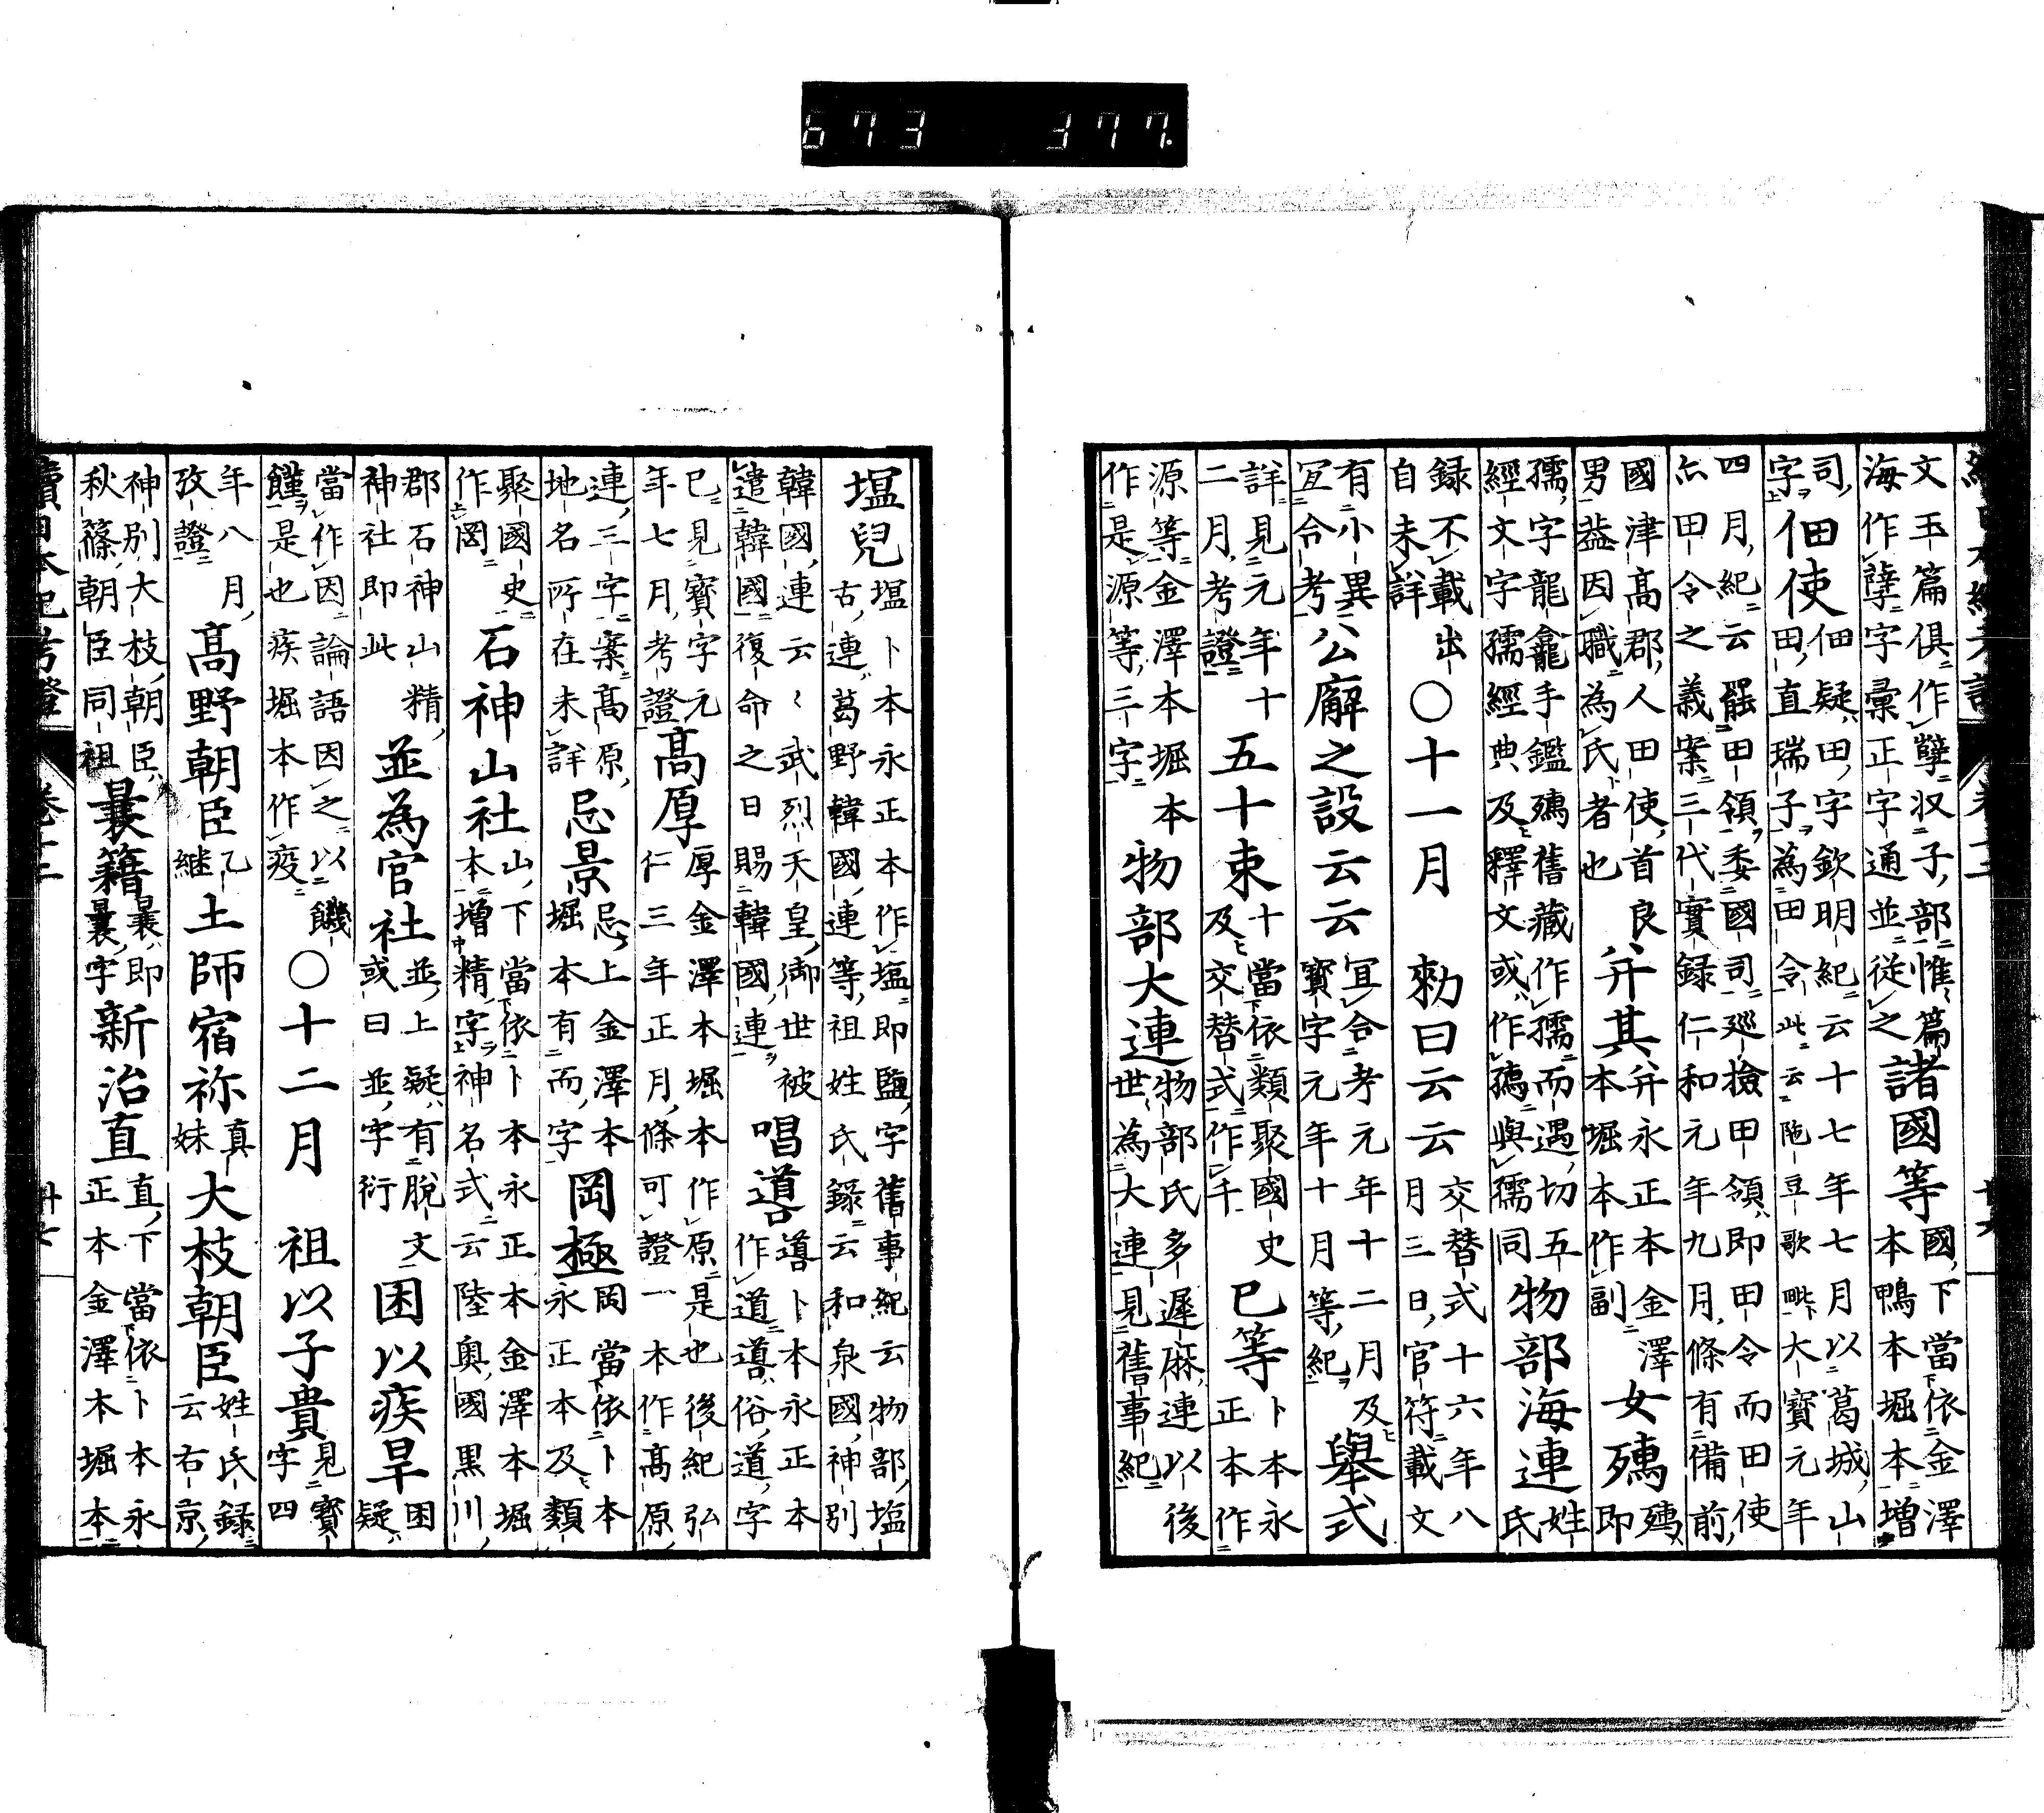 673 377.
文玉篇俱作孽㕛子部惟篇
海作孽字彙正字通並従之
諸國等
國下當依金澤
本鴨本堀本増
司
字
佃使
佃疑田字欽明紀云十七年七月以葛城山
田直瑞子為田令此云陁豆歌毗大寶元年
四月紀云罷田領委國司巡撿田領即田令而田使
亦田令之義案三代實録仁和元年九月條有備前
國津高郡人田使首良
男益因職為氏者也
幷其
幷永正本金澤
本堀本作副
女䳿
䳿
即
孺字龍龕手鑑䳿舊藏作孺而遇切五
經文字孺經典及釋文或作䳿與孺同
物部海連
姓
氏
録不載出
自未詳
○十一月
勑曰云云
交替式十六年八
月三日官符載文
有小異
宜合考
公廨之設云云
宜合考元年十二月及
寶字元年十月等紀
舉式
詳見元年十
二月考證
五十束
十當依類聚國史
及交替式作千
已等
卜本永
正本作
源等金澤本堀本
作是源等三字
物部大連
物部氏多遲麻連以後
世為大連見舊事紀
塭兒
塭卜本永正本作塩即鹽字舊事紀云物部塩
古連葛野韓國連等祖姓氏錄云和泉國神別
韓國連云〻武烈天皇御世被
遣韓國復命之日賜韓國連
唱導
噵卜本永正本
作道噵俗道字
巳見寶字元
年七月考證
髙厚
厚金澤本堀本作原是也後紀弘
仁三年正月條可證一本作髙原
連三字案髙原
地名所在未詳
忌景
忌上金澤本
堀本有而字
岡極
岡當依卜本
永正本及類
聚國史
作岡
石神山社
山下當依卜本永正本金澤本堀
本増精字神名式云陸奥國黒川
郡石神山精
神社即此
並為官社
並上疑有脫文
或曰並字衍
困以疾旱
困
疑
當作因論語因之以饑
饉是也疾堀本作疫
○十二月
祖以子貴
見寶
字四
年八月
攷證
髙野朝臣
乙
継
土師宿祢
真
妹
大枝朝臣
姓氏録
云右京
神別大枝朝臣
秋篠朝臣同祖
曩籍
曩即
曩字
新治直
直下當依卜本永
正本金澤本堀本
續日本紀考證 卷十二